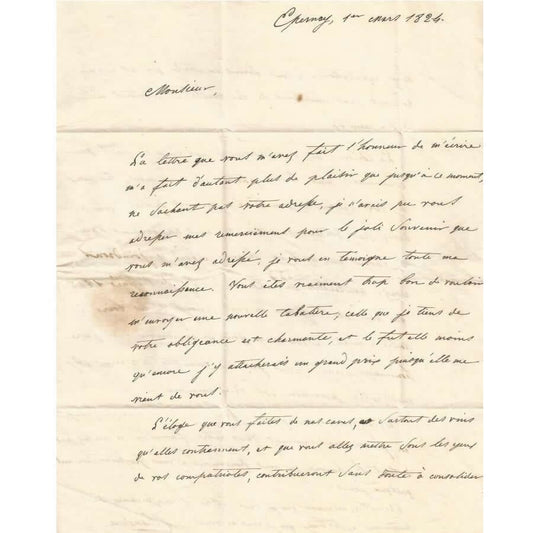 Epernay, 1er Mars 1824.
Monsieur,
La lettre que vous m'avez fait l'honneur de m'écrire
m'a fait d'autant plus de plaisir que jusqu'à ce moment,
ne sachant pas votre adresse, je n'avais pu vous
adresser mes remerciement pour le joli souvenir que
vous m'avez adressé, je vous en temoigne toute ma
reconnaissance. Vous êtes vraiment trop bon de vouloir
m'envoyer une nouvelle tabatiere, celle que je tiens de
votre obligeance est charmante, et le fut elle moins
qu'encore j'y attacherais un grand prix puisqu'elle me
vient de vous.
L'éloge que vous faites de nos caves, et surtout des vins
qu'elles contiennent, et que vous allez mettre sous les yeux
de vos compatriotes, contribueront sans doute à consolider